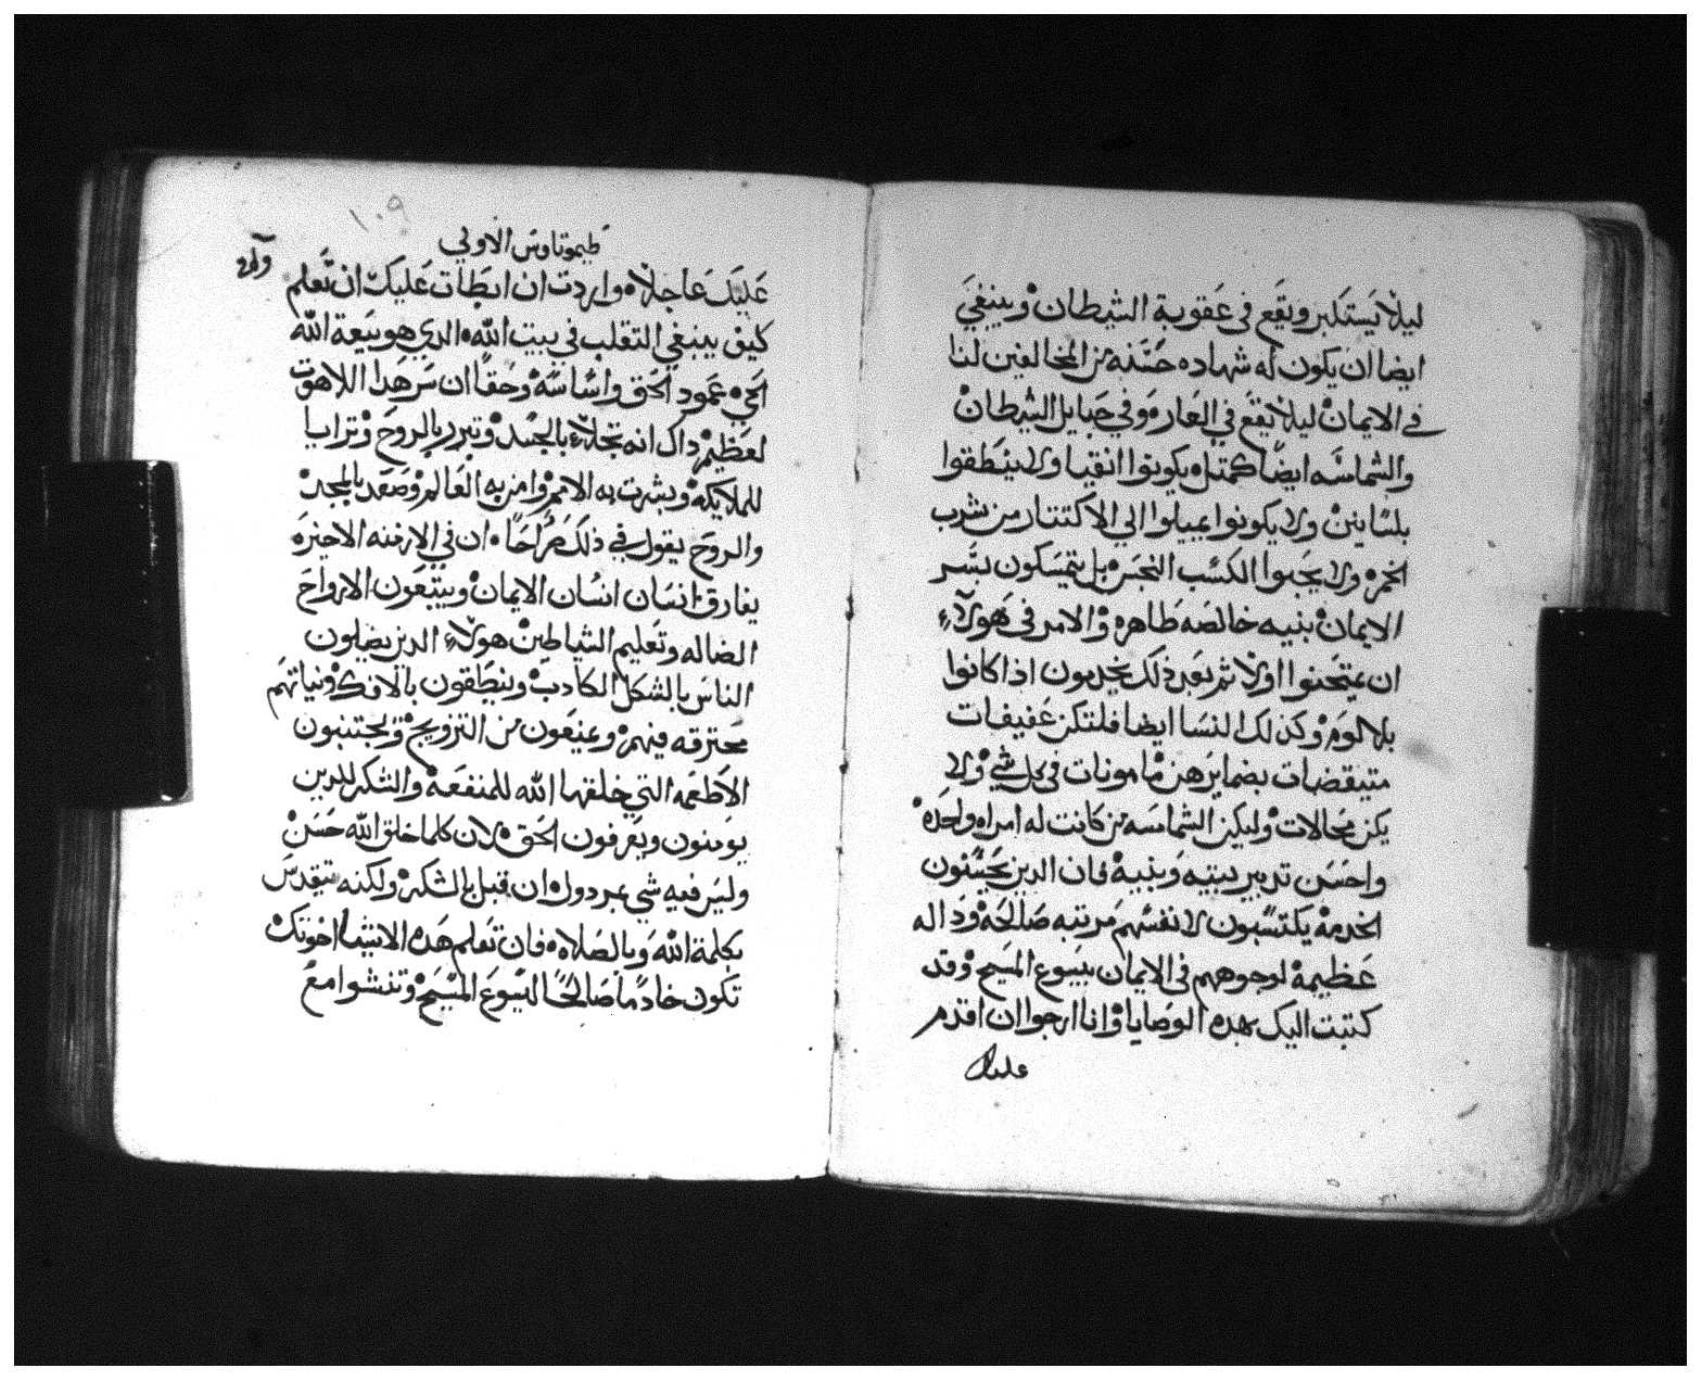 ليلا يستكبر ويقع في عقوبة الشيطان وينبغي
ايضا ان يكون له شهاده حسنه من المخالفين لنا
في الايمان ليلا يقع في العار وفي حبايل الشيطان
والشماسه ايضا كمتله يكونوا انقيا ولا ينطقوا
بلسانين ولا يكونوا يميلوا الي الاكتتار من شرب
الخمر ولا يحبوا الكسب النجس بل يتمسكون بسر
الايمان بنيه خالصه طاهره والامر في هولاء
ان يمتحنوا اولا ثم بعد ذلك يخدمون اذا كانوا
بلا لوم وكذلك النسا ايضا فلتكن عفيفات
متيقضات بضمايرهن مامونات في كل شي ولا
يكن محالات وليكن الشماسه من كانت له امراه واحده
واحسن تدبير بيته وبنيه فان الدين يحسنون
الخدمة يكتسبون لانفسهم مرتبه صالحة وداله
عظيمة لوجوههم في الايمان بيسوع المسيح وقد
كتبت اليك بهده الوصايا وانا ارجوا ان اقدم
عليك
١٠٩
طيموتاوس الاولي
عليك عاجلا واردت ان ابطات عليك ان تعلم
كيف ينبغي التقلب في بيت الله الدي هو بيعة الله
الحي عمود الحق واساسه وحقا ان سر هدا اللاهوت
لعظيم داك انه تجلاء بالجسد وتبرر بالروح وترايا
للملايكه وبشرت به الامم وامن به العالم وصعد بالمجد
والروح يقول في ذلك صراحا ان في الازمنه الاخيره
يفارق انسان انسان الايمان ويتبعون الارواح
الضاله وتعليم الشياطين هولاء الدين يضلون
الناس بالشكل الكادب وينطقون بالافك ونياتهم
محترقه فيهم ويمنعون من التزويج ويجتنبون
الاطعمه التي خلقها الله للمنفعة والشكر للدين
يومنون ويعرفون الحق لان كلما خلق الله حسن
وليس فيه شي بمردول ان قبل بالشكر ولكنه يتقدس
بكلمة الله وبالصلاه فان تعلم هده الاشيا اخوتك
تكون خادما صالحا ليسوع المسيح وتنشوا مع